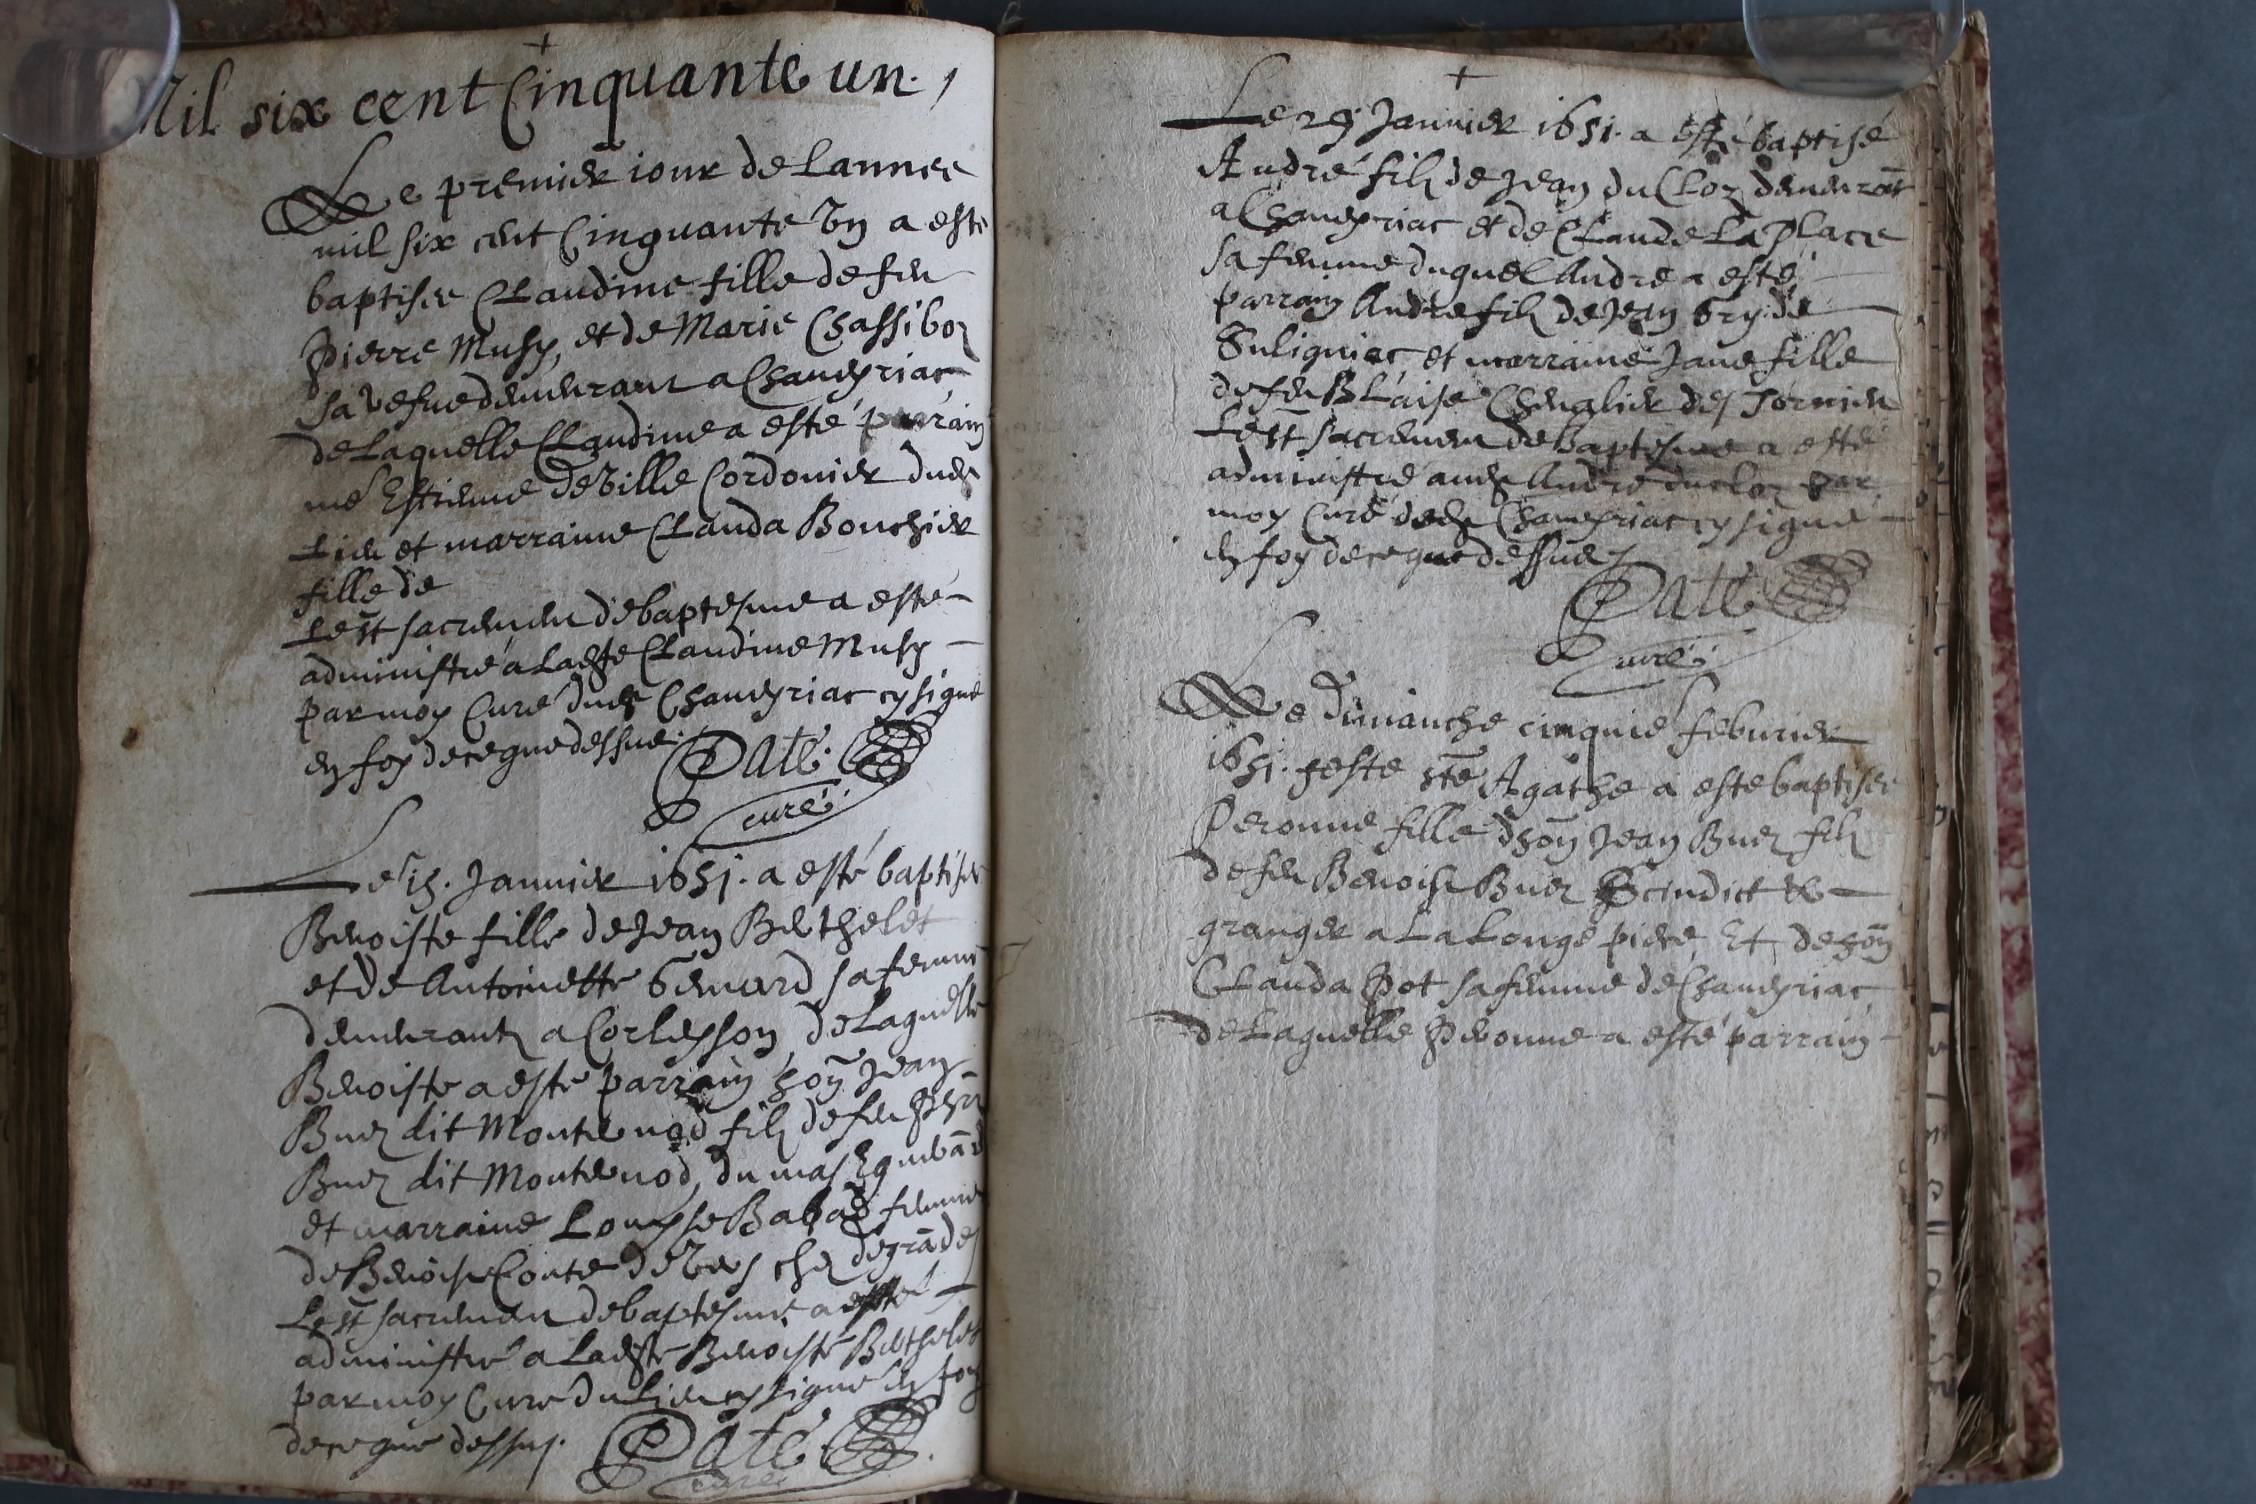 Mil six cent Cinquante un.
Le premier iour de Lannee
mil six cent Cinquante Un a esté
baptisee Claudine fille de feu
Pierre Musy, et de Marie Chassiboz
sa vefue demeurant a Chaueyriac
de Laquelle Claudine a esté parrain
me Estienne de Ville Cordonier dud
Lieu et marraine Clauda Bouchier
fille de
Le st sacrement de baptesme a esté
administré a Ladte Claudine Musy
par moy Curé dud Chaueyriac cy signé
en foy de ce que dessus.
Paté.
curé
Le 15. Januier 1651. a esté baptisee
Benoiste fille de Jean Berthelet
et de Antoinette sa femme
demeurantz a Corlesson, de Laquelle
Benoiste a esté parrain hon Jean
Buez dit Monternod filz de feu
Buez dit Monternod, du mas
et marraine Louyse Babad femme
de Benoist Conte de
Le st sacrement de baptesme a esté
administré a Ladte Benoiste Berthelet
par moy Curé du Lieu cy signé en foy
de ce que dessus.
Paté
curé
Le 29 Januier 1651. a esté baptisé
André filz de Jean du Cloz demeurāt
a Chaueyriac et de Claude La Place
sa femme duquel André a esté
parrain André filz de Jean Gry de
Suligniac, et marraine Jane fille
de feu Blaise Cheualier des
Le st sacrement de baptesme a esté
administré aud André du Cloz par
moy Curé dud Chaueyriac cy signé
en foy de ce que dessus
Paté
curé
Le dimanche cinquie feburier
1651. feste ste Agathe a esté baptisee
Peronne fille dhon Jean Buez filz
de feu Benoist Buez Scindict &
granger a La Longe piere, Et de hon
Clauda Pot sa femme de Chaueyriac,
de Laquelle Peronne a esté parrain